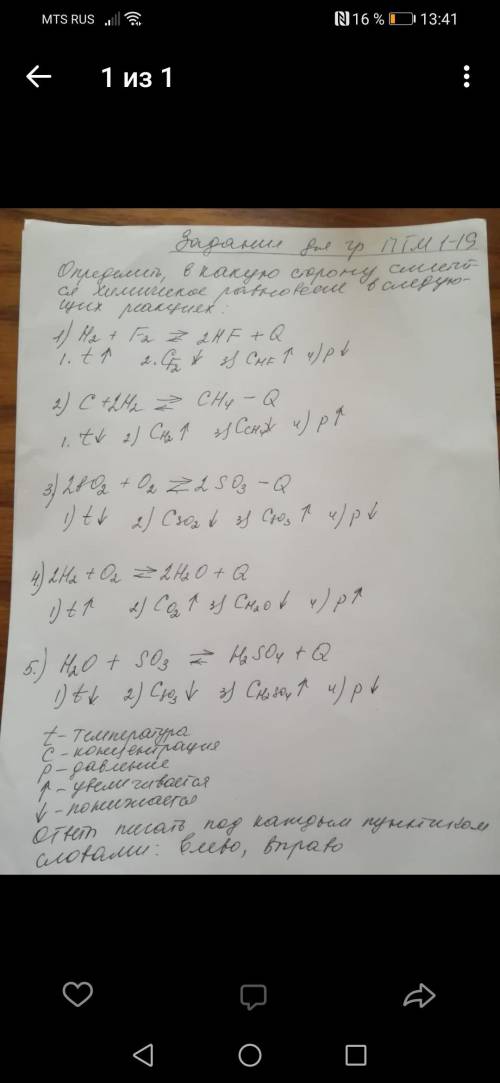 MTS RUS 16 % 13:41
1 из 1
Задание для гр ПТМ 1-19
Определить, в какую сторону сместит-
ся химическое равновесие в следую-
щих реакциях:
1) H₂ + F₂ ⇄ 2HF + Q
1. t↑ 2. CF₂ ↓ 3) CHF ↑ 4) p↓
2) C + 2H₂ ⇄ CH₄ - Q
1. t↓ 2) CH₂ ↑ 3) CCH₄↓ 4) p↑
3) 2SO₂ + O₂ ⇄ 2SO₃ - Q
1) t↓ 2) CSO₂ ↓ 3) CSO₃ ↑ 4) p↓
4.) 2H₂ + O₂ ⇄ 2H₂O + Q
1) t↑ 2) CO₂ ↑ 3) CH₂O ↓ 4) p↑
5.) H₂O + SO₃ ⇄ H₂SO₄ + Q
1) t↓ 2) CSO₃ ↓ 3) CH₂SO₄ ↑ 4) p↓
t - температура
C - концентрация
p - давление
↑ - увеличивается
↓ - понижается
Ответ писать под каждым пунктиком
словами: влево, вправо